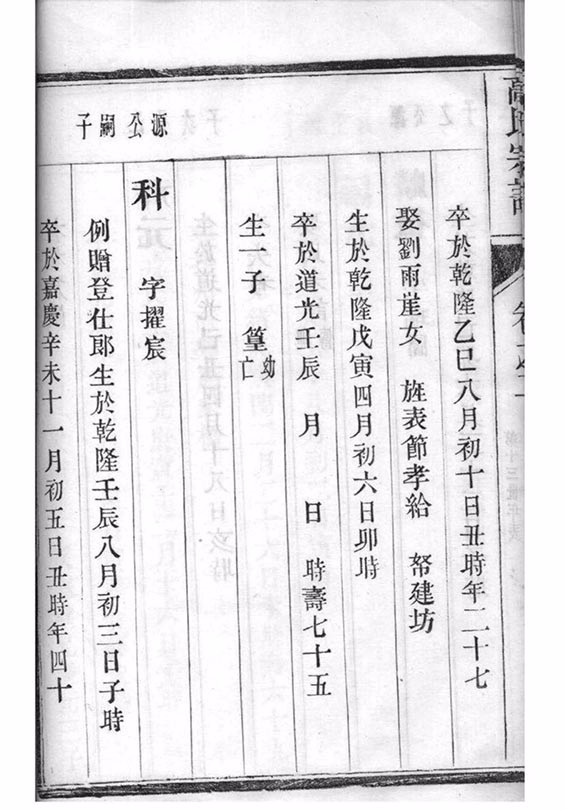 卒於乾隆乙巳八月初十日丑時年二十七
娶劉雨崖女 旌表節孝給 帑建坊
生於乾隆戊寅四月初六日卯時
卒於道光壬辰 月 日 時壽七十五
生一子 篁幼亡
源公嗣子
科 字擢宸
例贈登仕郎生於乾隆壬辰八月初三日子時
卒於嘉慶辛未十一月初五日丑時年四十